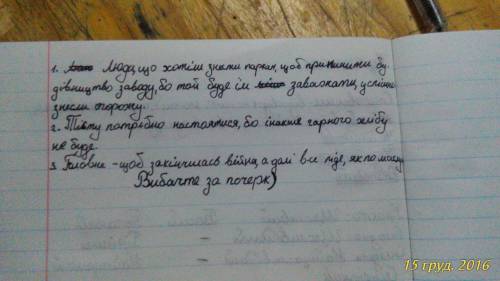 1. Люди, що хотіли знести паркан, щоб припинити бу-
дівництво заводу, бо той буде їм заважати, успішно
знесли огорожу.
2. Тісту потрібно настоятися, бо інакше гарного хлібу
не буде.
3. Головне - щоб закінчилась війна, а далі все піде, як по маслу.
Вибачте за почерк)
15 груд. 2016